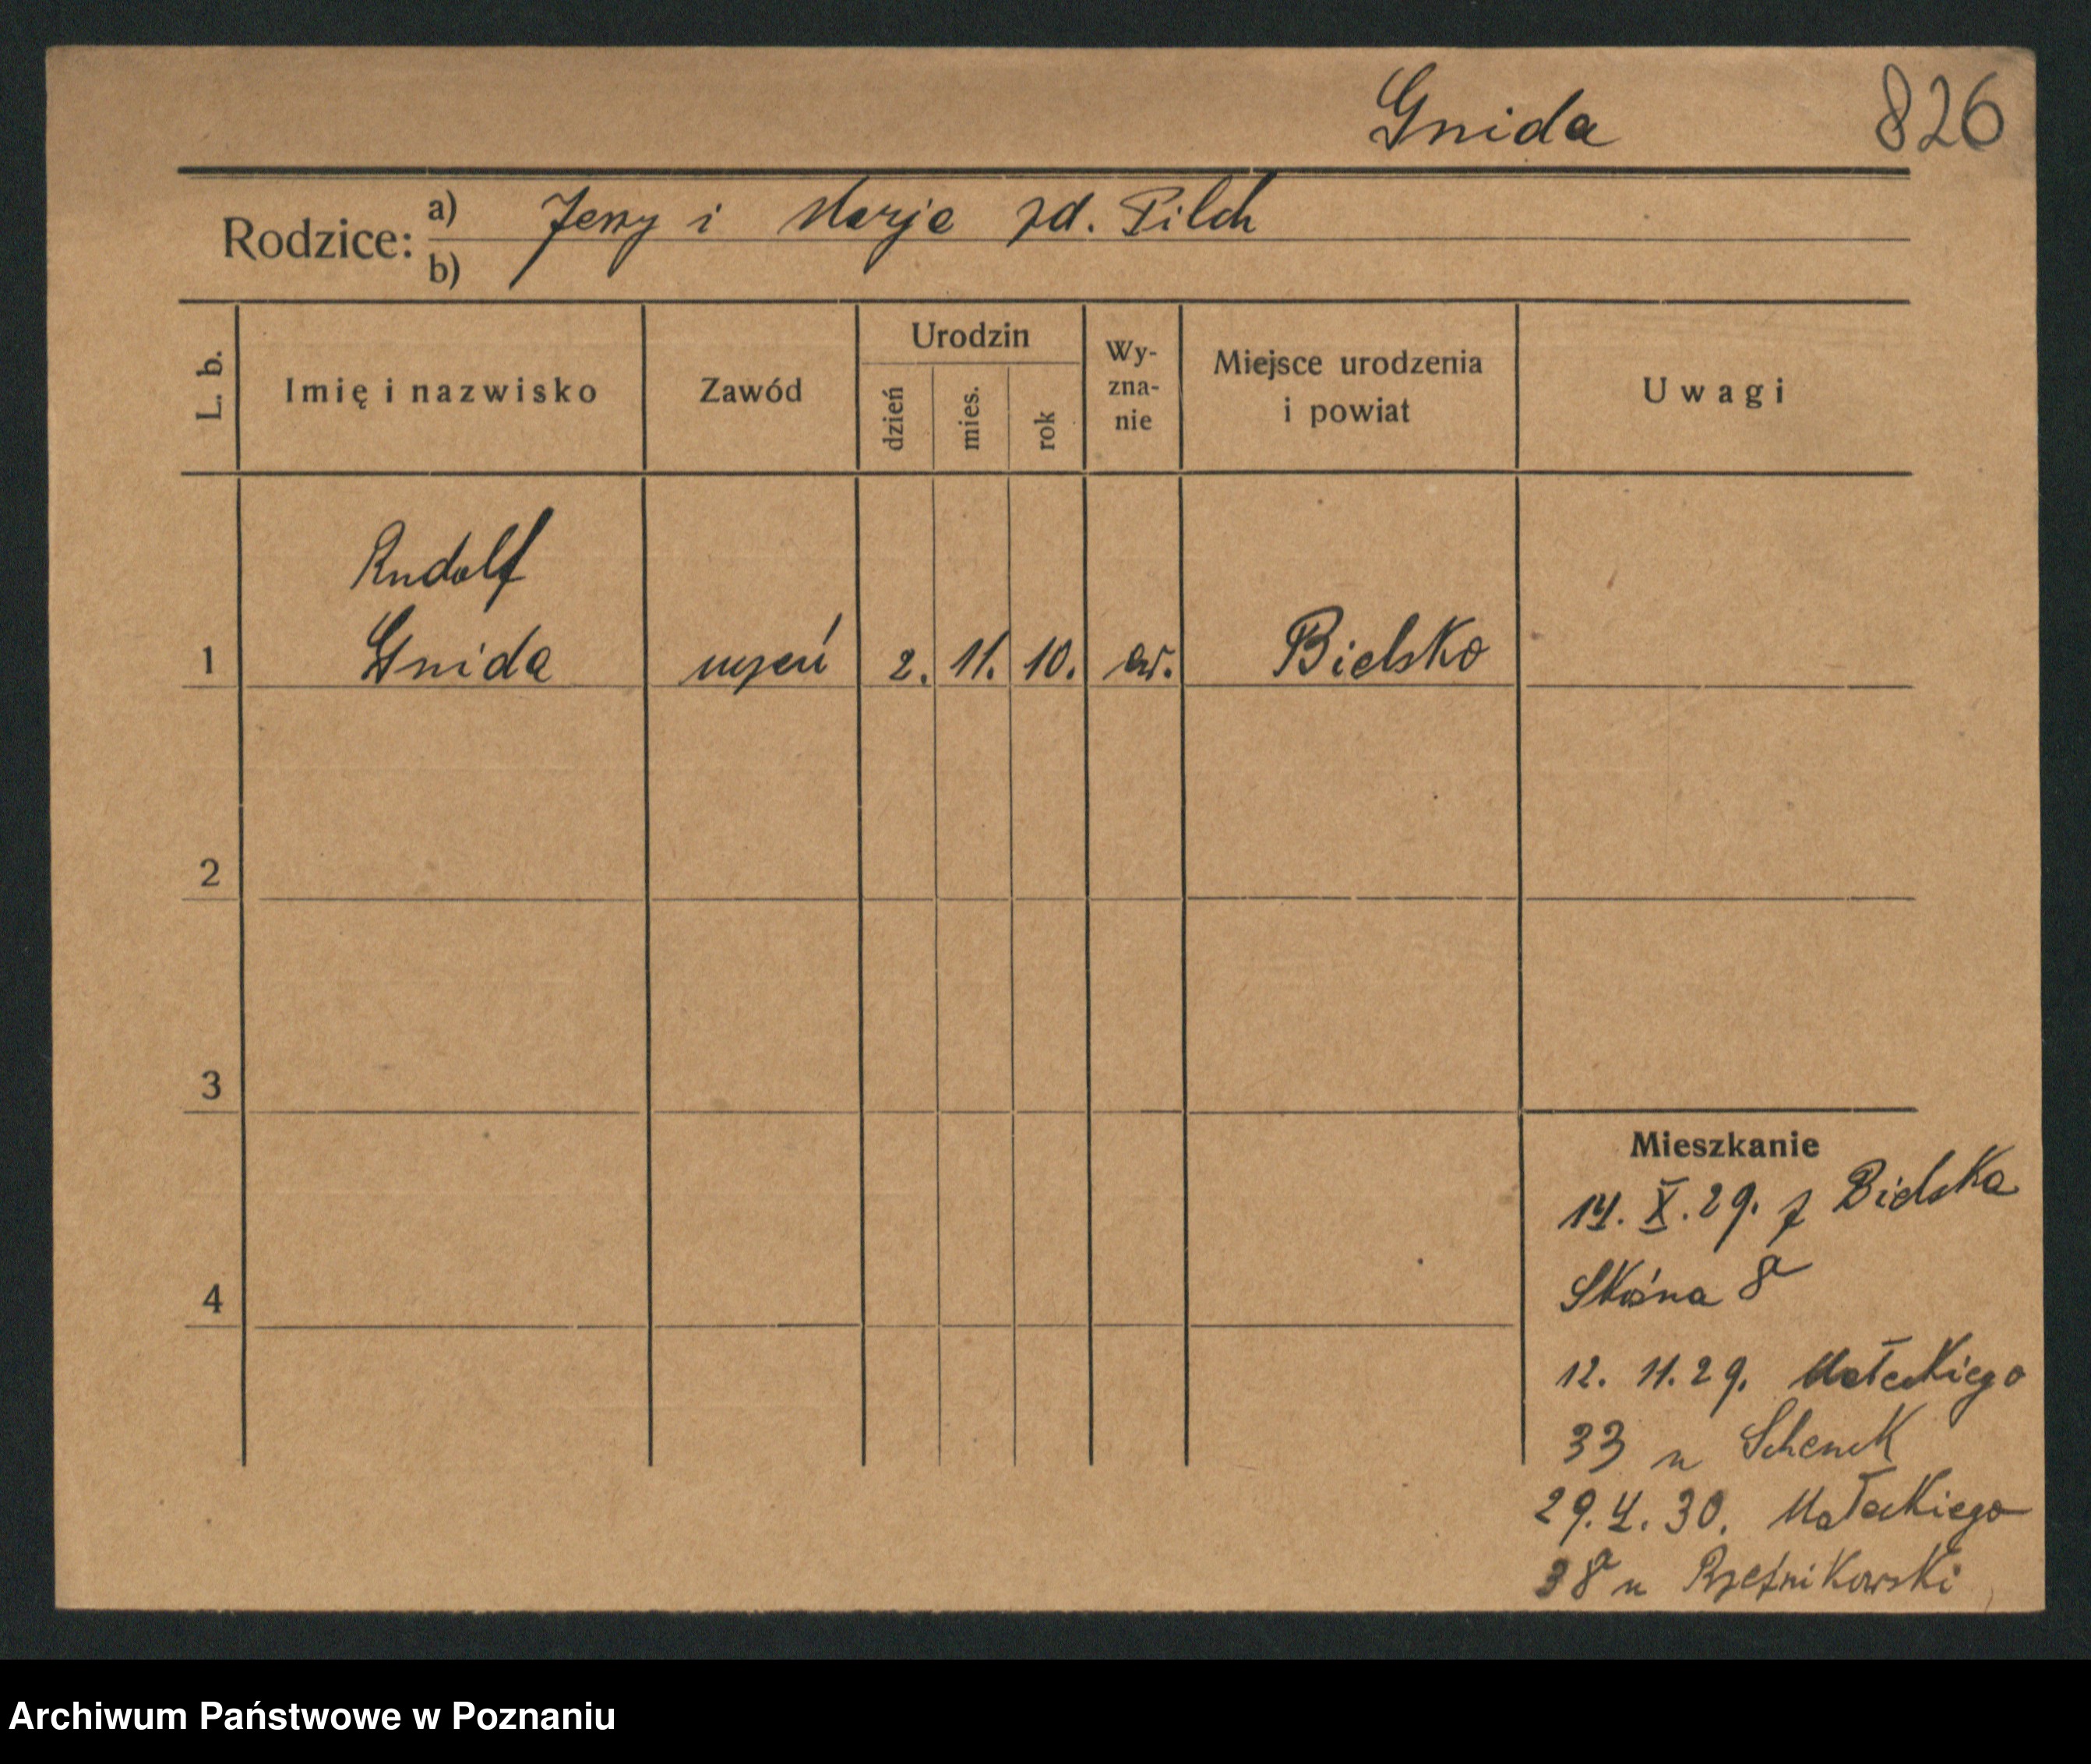 Gnida 826
Rodzice: a) Jerzy i Marja zd. Pilch
b)
L. b. Imię i nazwisko Zawód Urodzin dzień mies. rok Wy-zna-nie Miejsce urodzenia i powiat Uwagi
Rudolf
1 Gnida uczeń 2. 11. 10. ew. Bielsko
2
3
Mieszkanie
14. X. 29. z Bielska
4
Skośna 8a
12. 11. 29. Małeckiego
33 u Schenck
29. 4. 30. Małeckiego
38a u Rzeźnikowski
Archiwum Państwowe w Poznaniu